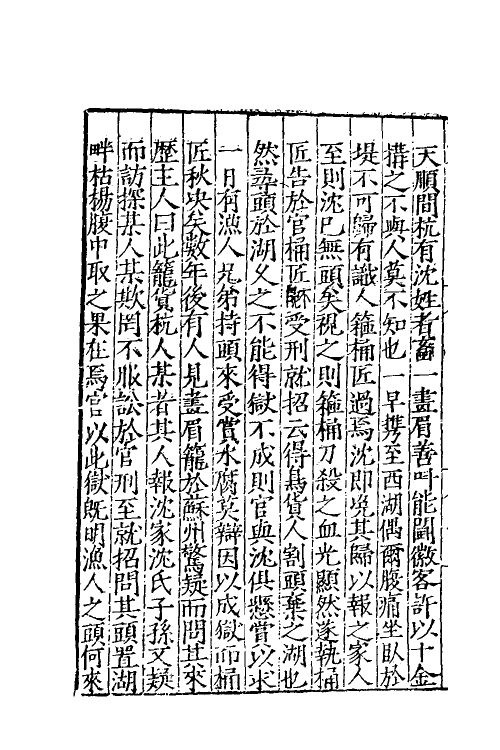 天順間杭有沈姓者畜一畫眉善叫能鬬徽客許以十金
搆之不與人莫不知也一早携至西湖偶爾腹痛坐臥於
堤不可歸有識人箍桶匠過焉沈即挽其歸以報之家人
至則沈已無頭矣視之則箍桶刀殺之血光顯然遂執桶
匠告於官桶匠受刑就招云得鳥貨人割頭棄之湖也
然尋頭於湖久之不能得獄不成則官與沈俱懸賞以求
一日有漁人兄弟持頭來受賞水腐莫辯因以成獄而桶
匠秋决矣數年後有人見畫眉籠於蘇州驚疑而問其來
歷主人曰此籠貨杭人某者其人報沈家沈氏子孫又疑
而訪探某人某欺罔不服訟於官刑至就招問其頭置湖
畔枯楊腹中取之果在焉官以此獄旣明漁人之頭何來